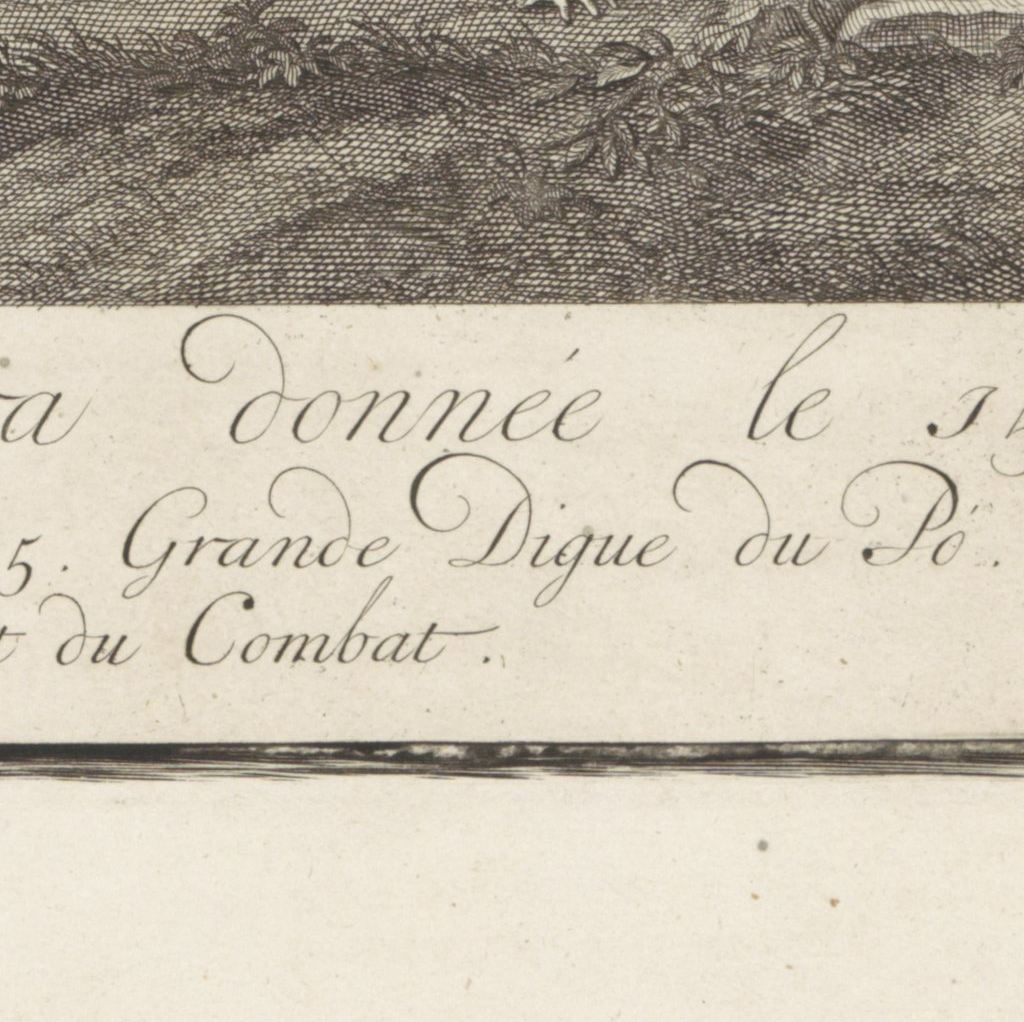 donnée le
5. Grande Digue du Pó.
du Combat.